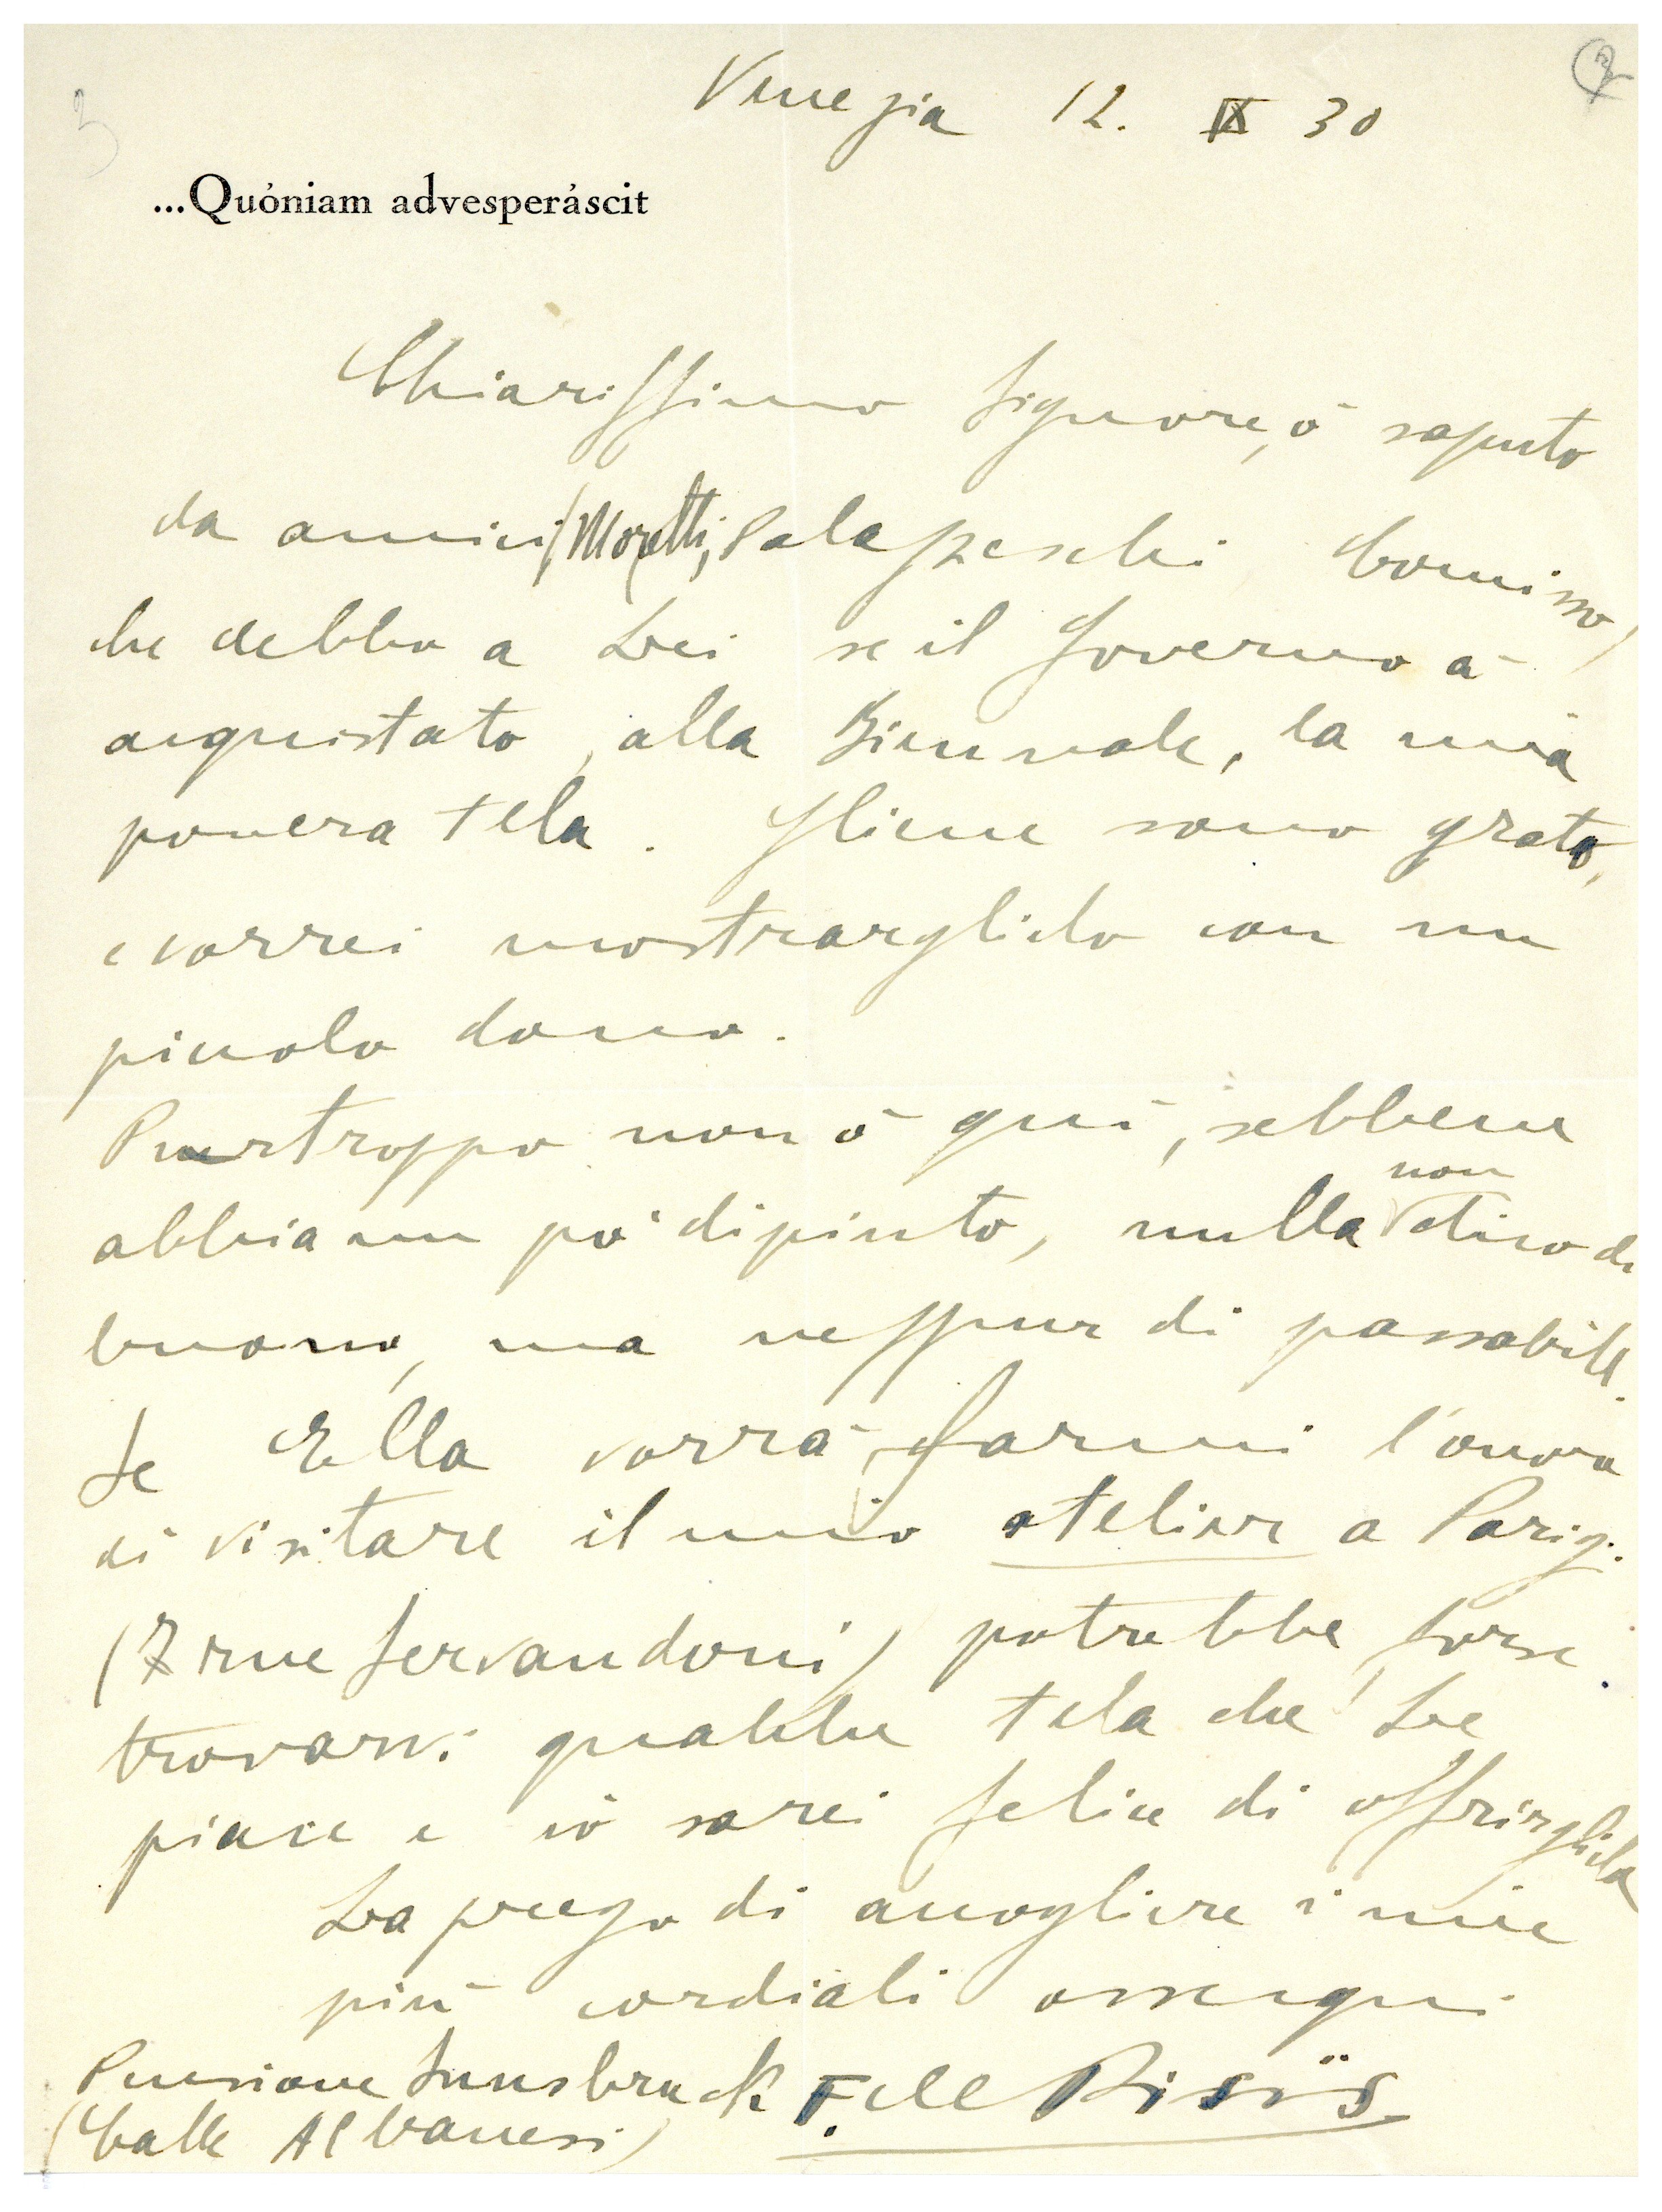 Venezia 12. IX 30
...Quóniam advesperáscit
Chiarissimo Signore, ò saputo
da amici (Moretti, Palazzeschi, Comisso)
che debbo a Lei se il Governo à
acquistato, alla Biennale, la mia
povera tela. Gliene sono grato,
e vorrei mostrarglielo con un
piccolo dono.
Purtroppo non ò quì, sebbene
abbia un pò dipinto, nulla non dico di
buono, ma neppur di passabile.
Se Ella vorrà farmi l'onore
di visitare il mio atelier a Parigi
(7 rue Servandoni) potrebbe, forse
trovarvi qualche tela che Le
piace e io sarei felice di offrirgliela
La prego di accogliere i miei
più cordiali ossequi
Pensione Innsbruck F. de Pisis
(Calle Albanesi)